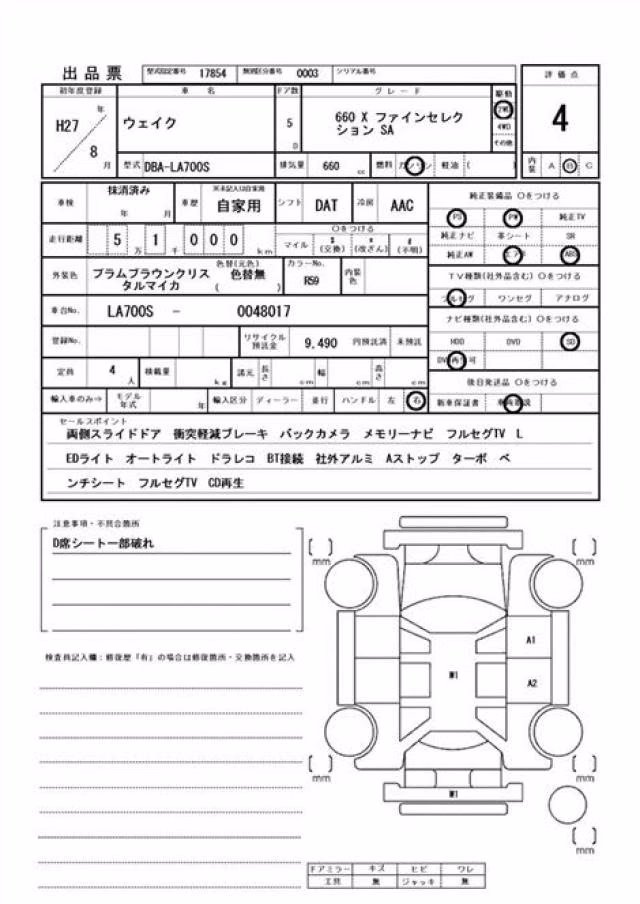 出品票 型式指定番号 17854 類別区分番号 0003 シリアル番号
初年度登録 車 名 ドア数 グ レ ー ド 駆動 評価点
H27 年 8 月 ウェイク 5 D 660 X ファインセレク 2WD 4
ション SA 4WD
その他
型式 DBA-LA700S 排気量 660 cc 燃料 ガソリン 軽油 ( ) 内装 A B C
車検 抹消済み 年 月 車歴 ※未記入は自家用 自家用 シフト DAT 冷房 AAC 純正装備品 〇をつける
PS PW 純正TV
走行距離 5 万 1 千 0 0 0 km 〇をつける
マイル $(交換) *(改ざん) #(不明) 純正ナビ 革シート SR
純正AW エアB ABS
外装色 プラムブラウンクリス
タルマイカ 色替(元色) 色替無 ( ) カラーNo. R59 内装色 TV種類(社外品含む) 〇をつける
フルセグ ワンセグ アナログ
車台No. LA700S - 0048017 ナビ種類(社外品含む) 〇をつける
登録No. リサイクル預託金 9,490 円預託済 未預託 HDD DVD SD
DVD再生可
定員 4 人 積載量 kg 諸元 長さ cm 幅 cm 高さ cm 後日発送品 〇をつける
輸入車のみ⇒ モデル年式 年 輸入区分 ディーラー 並行 ハンドル 左 右 新車保証書 車両取説
セールスポイント
両側スライドドア 衝突軽減ブレーキ バックカメラ メモリーナビ フルセグTV L
EDライト オートライト ドラレコ BT接続 社外アルミ Aストップ ターボ ベ
ンチシート フルセグTV CD再生
注意事項・不具合箇所
D席シート一部破れ
検査員記入欄:修復歴「有」の場合は修復箇所・交換箇所を記入
[ ] mm [ ] mm
A1
W1 A2
[ ] mm [ ] mm
W1
[ ] mm
ドアミラー キズ ヒビ ワレ
工具 無 ジャッキ 無